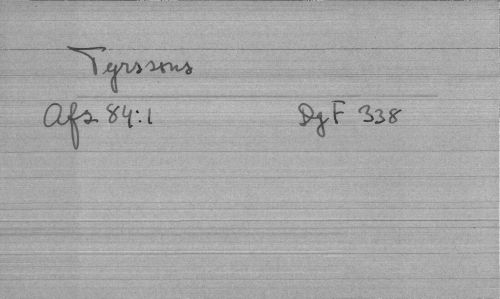 Tyrssons
Afs 84:1 DgF 338